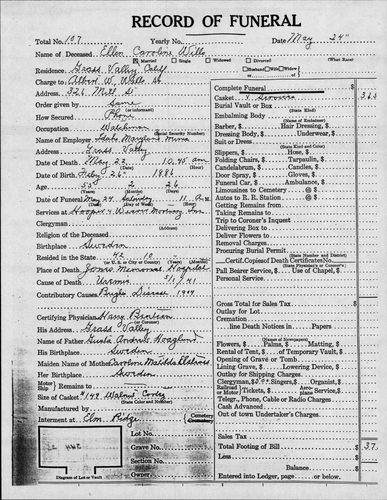 RECORD OF FUNERAL
Total No. 107 Yearly No. Date May 24"
Name of Deceased Ellen Caroline Wills
Married Single Widowed Divorced (What Race)
Residence Grass Valley Calif
Husband Wife of
Charge to Albert W. Wills
Address 326 Mill St
Order given by Same
(or informant)
How Secured Phone
Occupation
(Social Security Number)
Name of Employer
Address Grass Valley
Date of Death May 22 10:45 am
Date of Birth Feby 26" 1886
Age 55 2 26
Date of Funeral May 24 Saturday 11 a.m.
Services at Hooper & Weaver Mortuary
Clergyman
Religion of the Deceased
Birthplace Sweden
Resided in the State 42 10
Place of Death Jones Memorial Hospital
Cause of Death Uremia
Contributory Causes Brights Disease
Certifying Physician Harry
His Address Grass Valley
Name of Father Gusta Andrew Hoaglund
His Birthplace Sweden
Maiden Name of Mother
Her Birthplace Sweden
Motor Ship Remains to
Size of Casket Walnut
(State Color and Number)
Manufactured by
Interment at Elm Ridge Cemetery
Lot No.
Grave No.
Section No.
Owner
Diagram of Lot or Vault
Complete Funeral
Casket & Services
Burial Vault or Box
(State Kind)
Embalming Body
(Name of Embalmer)
Barber, $ Hair Dressing, $
Dressing Body, $ Underwear, $
Suit or Dress
(State Kind)
Slippers, $ Hose, $
Folding Chairs, $ Tarpaulin, $
Candelabrum, $ Candles, $
Door Spray, $ Gloves, $
Funeral Car, $ Ambulance, $
Limousines to Cemetery @ $
Autos to R. R. Station @ $
Getting Remains from
Taking Remains to
Trip to Coroner's Inquest
Delivering Box to
Deliver Flowers to
Removal Charges
Procuring Burial Permit
(State Number and District)
Certif. Copies of Death Certificate No.
(State Physician's or Coroner's)
Pall Bearer Service, $ Use of Chapel, $
Personal Service
Gross Total for Sales Tax
Outlay for Lot
Cremation
line Death Notices in Papers
(Name Newspapers)
Flowers, $ Palms, $ Matting, $
Rental of Tent, $ of Temporary Vault, $
Opening of Grave or Tomb
Lining Grave, $ Lowering Device, $
Outlay for Shipping Charges
Clergyman, $ Singers, $ Organist, $
Railroad Motor Tickets, $ Aeroplane Service, $
Telegr., Phone, Cable or Radio Charges
Cash Advanced
Out of town Undertaker's Charges
Sales Tax
Total Footing of Bill $
Less
Balance
Entered into Ledger, page or below.